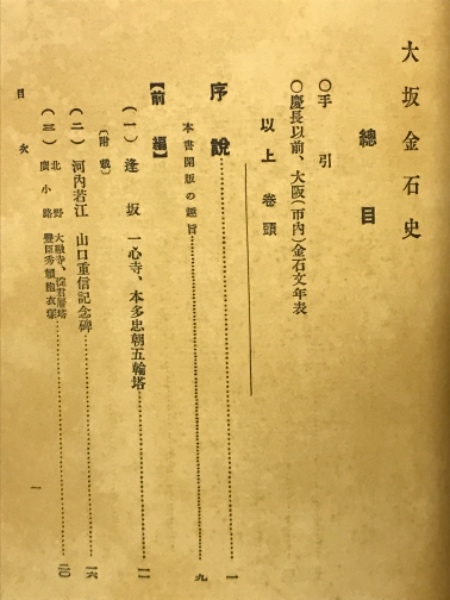 大坂金石史
總目
○手引
○慶長以前、大阪(市內)金石文年表
以上卷頭
序說…………一
本書開版の趣旨…………九
【前編】
(一)逢坂 一心寺、本多忠朝五輪塔…………一一
〔附載〕
(二)河內若江 山口重信記念碑…………一六
(三)北野 大融寺、
廣小路 豐臣秀賴胞衣塚…………二〇
目次
一